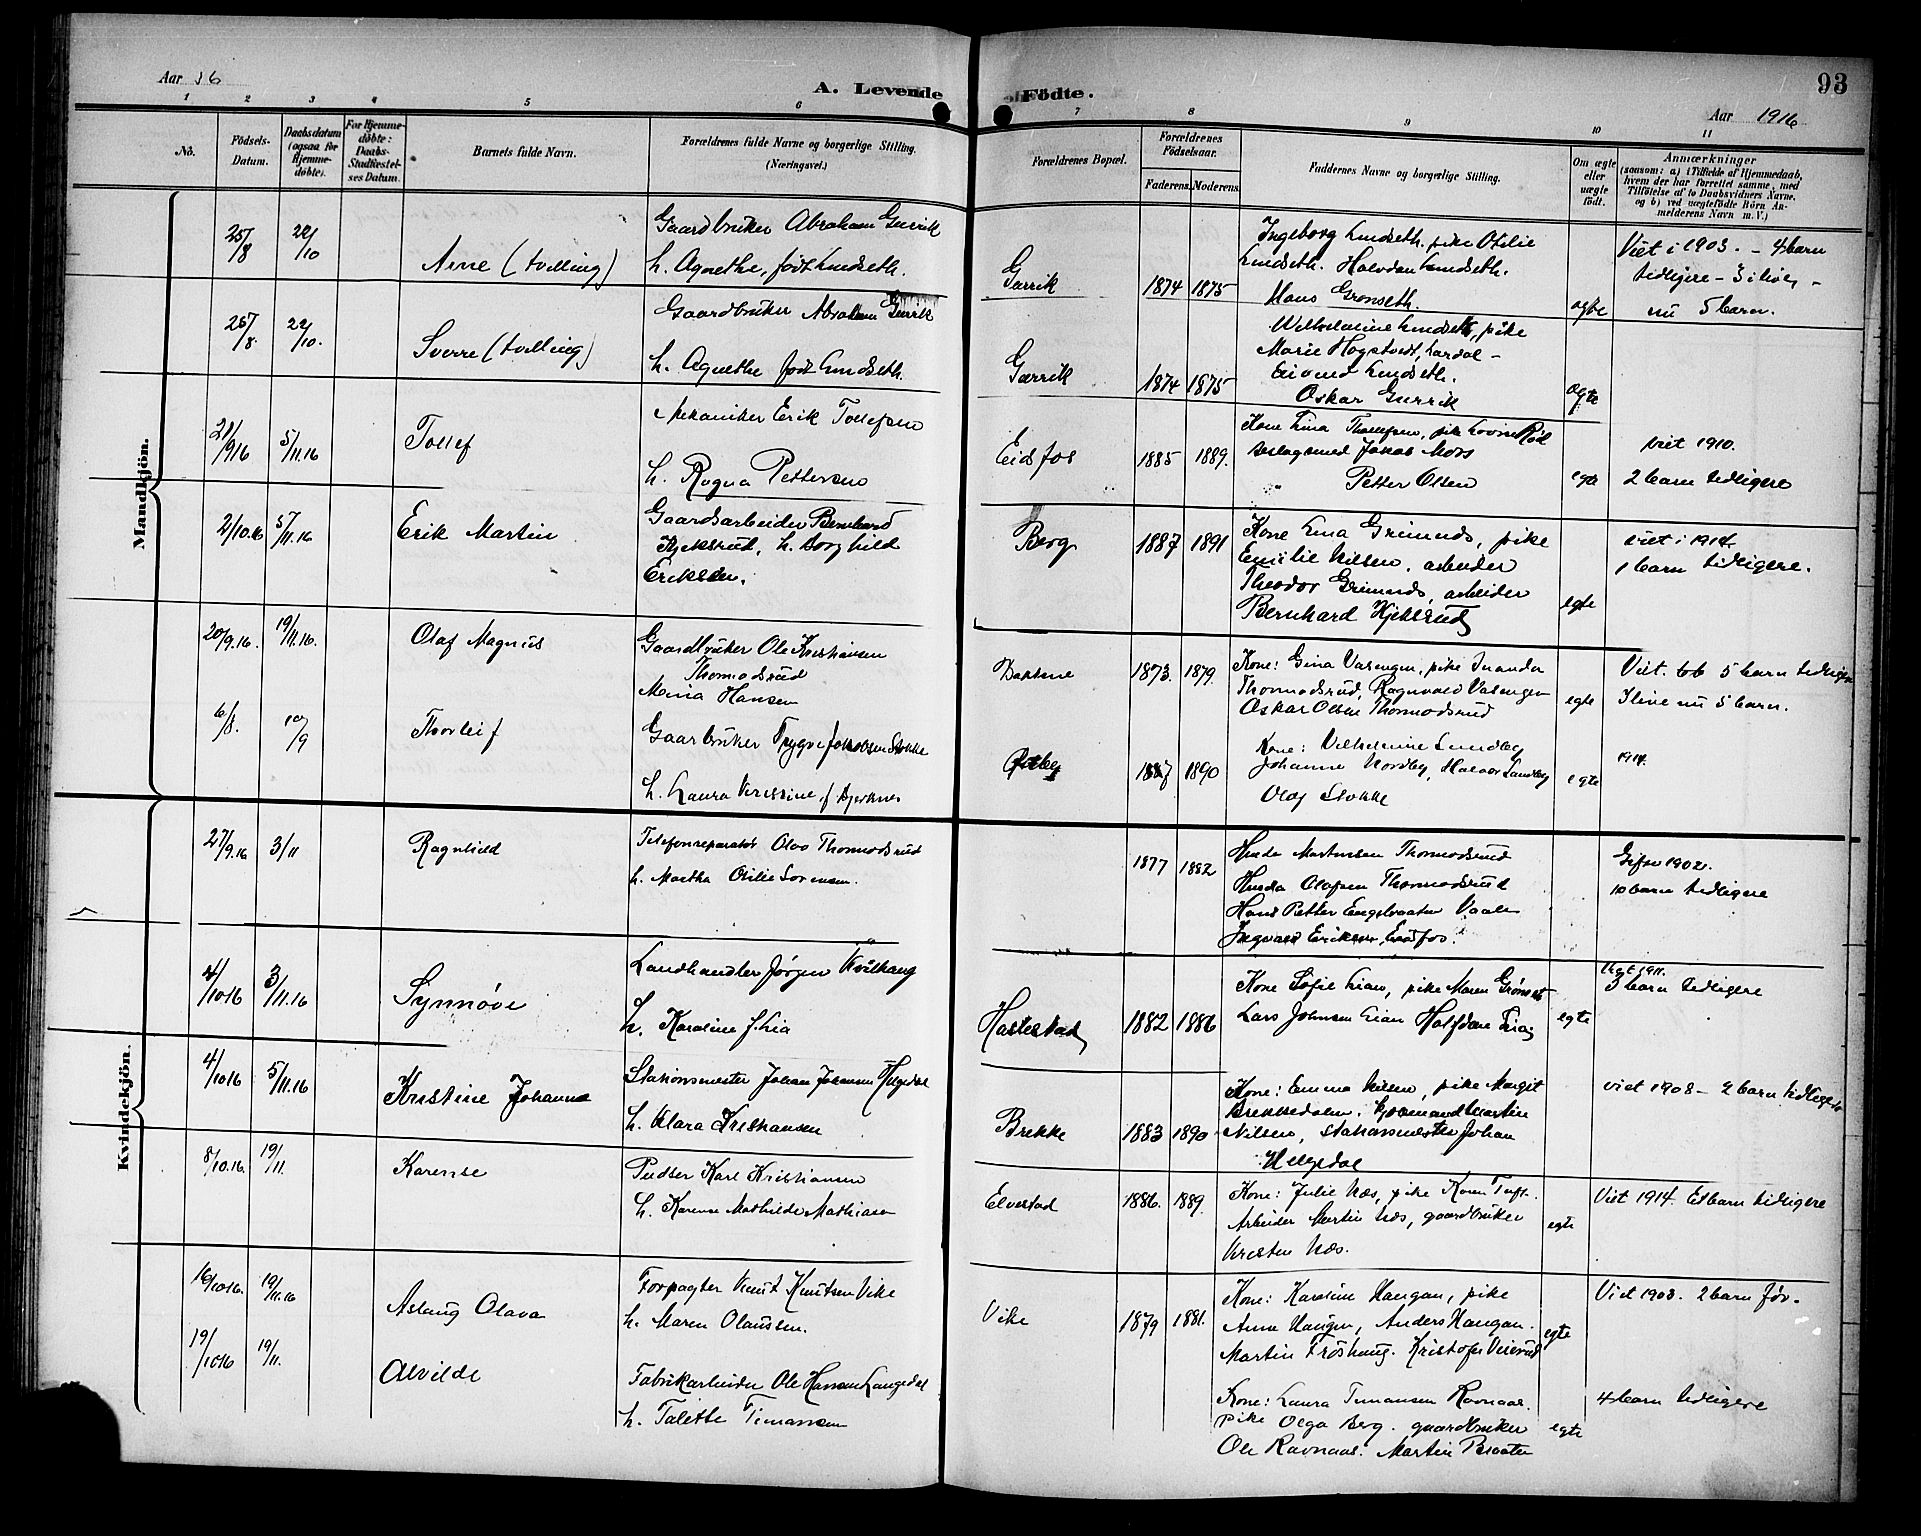 Aar 16
A. Levende Födte.
93
Aar 1916
1 2 3 4 5 6 7 8 9 10 11
No.
Födsels-Datum.
Daabsdatum (ogsaa for Hjemmedöbte).
For Hjemmedöbte: Daabs-Stadfæstelses Datum.
Barnets fulde Navn.
Forældrenes fulde Navne og borgerlige Stilling.
(Næringsvei.)
Forældrenes Bopæl.
Forældrenes Födselsaar.
Faderens. Moderens.
Faddernes Navne og borgerlige Stilling.
Om ægte eller uægte födt.
Anmærkninger
(saasom: a) i Tilfælde af Hjemmedaab,
hvem der har forrettet samme, med
Tilföielse af to Daabsvidners Navne,
og b) ved uægtefödte Börn Anmelderens Navn m. V.)
Mandkjön.
25/8 22/10 Arne (tvilling)
Gaardbruker Abraham Gurrik
h. Agnethe, født Lindseth.
Gurrik 1874 1875
Ingeborg Lindseth. pike Otilie
Lindseth. Halvdan Lindseth.
Hans Grønseth.
ægte
Viet i 1903. - 4 barn
tidligere - 3 ilive -
nu 5 barn.
25/8 22/10. Sverre (tvilling)
Gaardbruker Abraham Gurrik
h. Agnethe født Lindseth.
Gurrik 1874 1875
Wilhelmine Lindseth, pike
Marie Hogstvedt, Lardal -
Eivind Lindseth.
Oskar Gurrik
ægte
21/9 16 5/11.16 Tollef
Mekaniker Erik Tollefsen
h. Ragna Pettersen
Eidsfos 1885 1889.
Kone Lina Thollefsen, pike Lovine Rød
Beslagsmed Jakob Mors
" Petter Olsen
egte
viet 1910.
2 barn tidligere
2/10.16 5/11.16 Erik Martin
Gaardsarbeider Bernhard
Hjeksrud, h. Borghild
Eriksen.
Berg 1887 1891
Kone Lina Grimnds, pike
Emilie Nilsen, arbeider
Theodor Grimnds, arbeider
Bernhard Hjeksrud
egte
viet i 1914.
1 barn tidligere.
20/9.16. 19/11.16. Olaf Magnus
Gaardbruker Ole Kristiansen
Thormodsrud
Mina Hansen
Bakkene 1873. 1879.
Kone: Gina Vasengen, pike Inanda
Thormodsrud, Ragnvald Vasengen
Oskar Olsen Thormodsrud
egte
Viet. 5 barn tidligere
Ilive nu 5 barn.
6/8. 10/9 Thorleif
Gaarbruker Trygve Jakobsen Stokke
h. Laura Kirstine f. Bjerknes
1887 1890
Kone: Vilhelmine Sundby
Johanne Nordby, Halvor Sundby
Olaf Stokke
egte
1914.
Kvindekjön.
27/9.16 3/11 Ragnhild
Telefonreparatør Olav Thormodsrud
h. Martha Otilie Sørensen.
1877 1882
Hulda Martinsen Thormodsrud
Hulda Olafsen Thormodsrud
Hans Petter Engelvaaten Vaale
Ingvald Eriksen, Eidsfos.
Gifte 1902.
10 barn tidligere
4/10 16 3/11.16 Synnøve
Landhandler Jørgen Kvilhaug
h. Karoline f. Lia
Haslestad 1882 1886
Kone Sofie Lian, pike Maren Grønset
Lars Johnsen Lian Halfdan Lia
egte
Viet 1911.
3 barn tidligere
4/10 16 5/11.16 Kristine Johanne
Stationsmester Johan Johansen Helgedal
h. Klara Kristiansen
Brekke 1883 1890
Kone: Emma Nilsen, pike Margit
Brekkedalen. Kjøbmand Martin
Nilsen, stationsmester Johan
Helgedal
viet 1908 - 2 barn tidligere
8/10.16. 19/11. Karense
Pudser Karl Kristiansen
h. Karense Mathilde Mathiasen
Elvestad 1886. 1889.
Kone: Julie Næs, pike Karen Tuft.
Arbeider Martin Næs, gaardbruker
Kristen Næs.
egte
Viet 1914. Et barn tidligere
16/10 16. 19/11.16 Aslaug Olava
Forpagter Knut Knutsen Vike
h. Maren Olaussen.
Vike 1879 1881.
Kone: Karoline Haugan, pike
Anne Haugen, Anders Haugan.
Martin Frøshaug. Kristofer Viserud
egte
Viet 1903. 2 barn før.
19/10 16 19/11. Alvilde
Fabrikarbeider Ole Hansen Langedal
h. Talette Timansen
Kone: Laura Timansen Ravnaas.
pike Olga Berg. gaardbruker
Ole Ravnaas. Martin Braaten
egte
4 barn tidligere